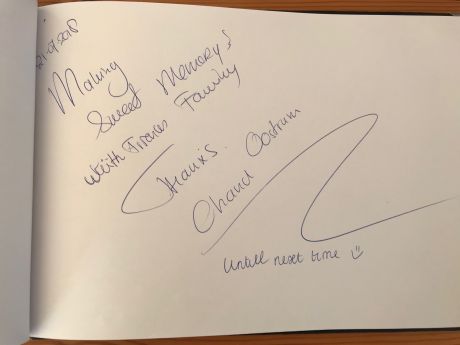 Making
Sweet Memory's
with Friends Family
Thanks.
Chand Oostrum
Untill next time